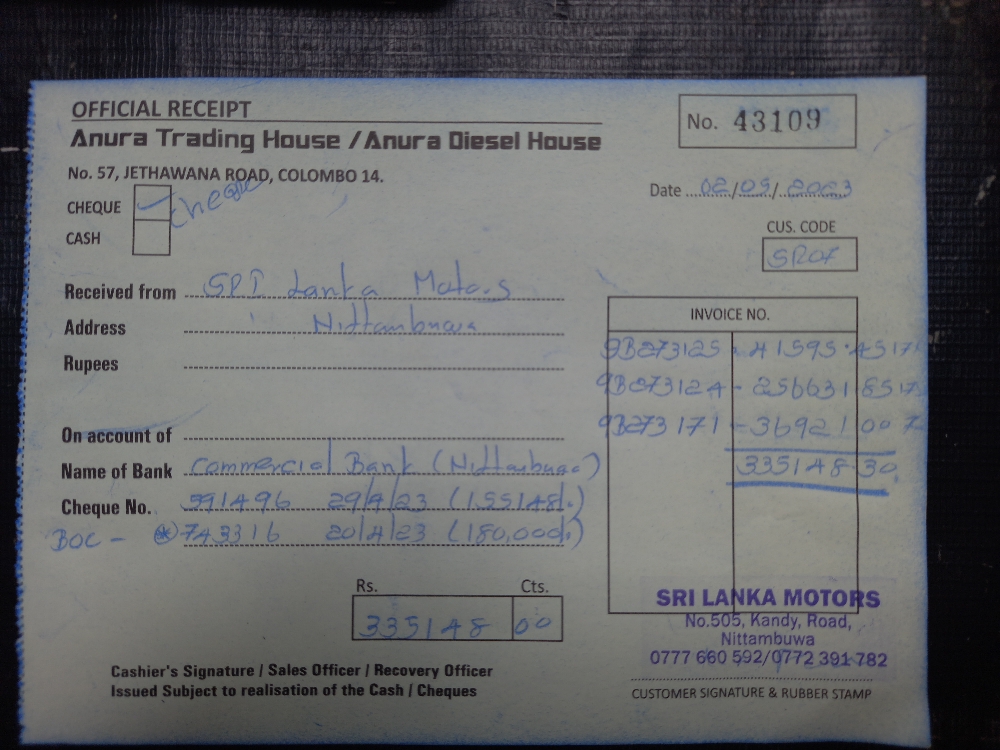 OFFICIAL RECEIPT
Anura Trading House / Anura Diesel House
No. 43109
No. 57, JETHAWANA ROAD, COLOMBO 14.
Date 02/05/2023
CHEQUE cheque
CASH
CUS. CODE
Received from SRI Lanka Motors
Address Nittambuwa
Rupees
INVOICE NO.
9B273125 - 41595.45
9B273124 - 256631 85
9B273171 - 36921 00
335148.30
On account of
Name of Bank Commercial Bank (Nittambuwa)
Cheque No. 591496 29/4/23 (155148/.)
BOC - 743316 20/4/23 (180,000/.)
Rs. Cts.
335148 00
SRI LANKA MOTORS
No.505, Kandy, Road,
Nittambuwa
0777 660 592/0772 391 782
Cashier's Signature / Sales Officer / Recovery Officer
Issued Subject to realisation of the Cash / Cheques
CUSTOMER SIGNATURE & RUBBER STAMP